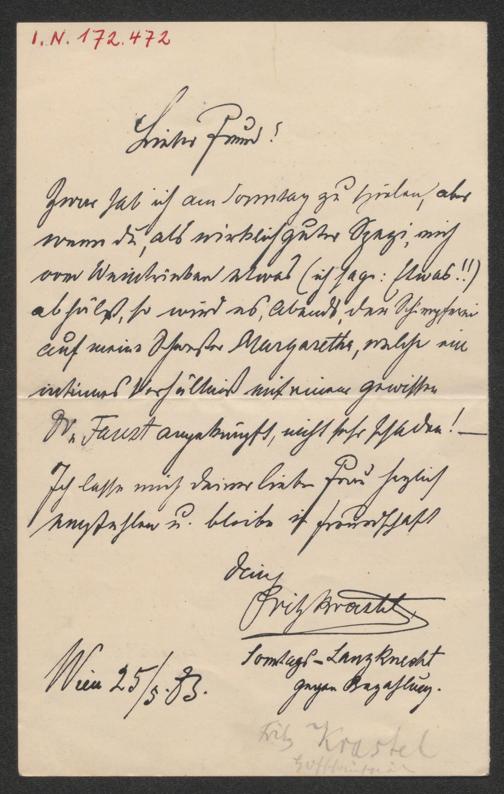 I. N. 172.472
Lieber Freund!
Zwar hab ich am Sonntag zu spielen, aber
wenn du, als wirklich guter Spezi, mich
vom Weintrinken etwas (ich sage: Etwas!!)
abhälst, so wird es, Abends den Schimpferei
auf meine Schwester Margarethe, welche ein
intimes Verhältniß mit einem gewissen
Dr. Faust angeknüpft, nicht sehr schaden! —
Ich lasse mich deiner lieben Frau herzlich
empfehlen u. bleibe in Freundschaft
Dein
Fritz Krastel
Sonntags-Lanzknecht
gegen Bezahlung.
Wien 25/5. 83.
Fritz Krastel